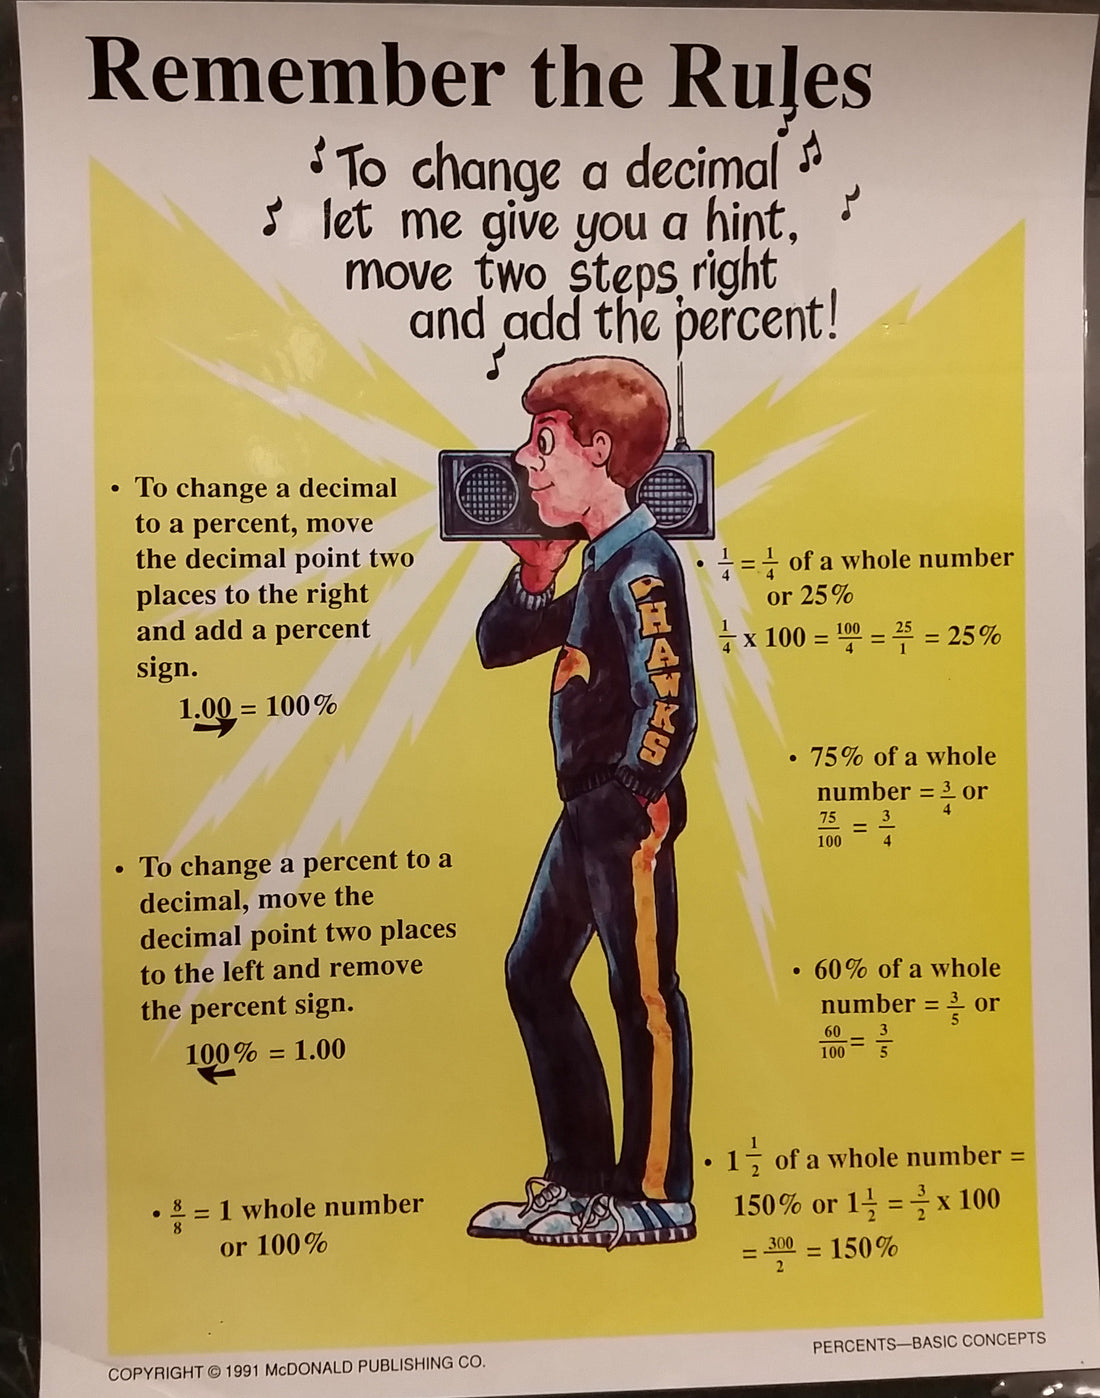 Remember the Rules
To change a decimal
let me give you a hint,
move two steps right
and add the percent!
HAWKS
• To change a decimal
to a percent, move
the decimal point two
places to the right
and add a percent
sign.
1.00 = 100%
• To change a percent to a
decimal, move the
decimal point two places
to the left and remove
the percent sign.
100% = 1.00
• 8/8 = 1 whole number
or 100%
• 1/4 = 1/4 of a whole number
or 25%
1/4 x 100 = 100/4 = 25/1 = 25%
• 75% of a whole
number = 3/4 or
75/100 = 3/4
• 60% of a whole
number = 3/5 or
60/100 = 3/5
• 1 1/2 of a whole number =
150% or 1 1/2 = 3/2 x 100
= 300/2 = 150%
COPYRIGHT © 1991 McDONALD PUBLISHING CO.
PERCENTS—BASIC CONCEPTS